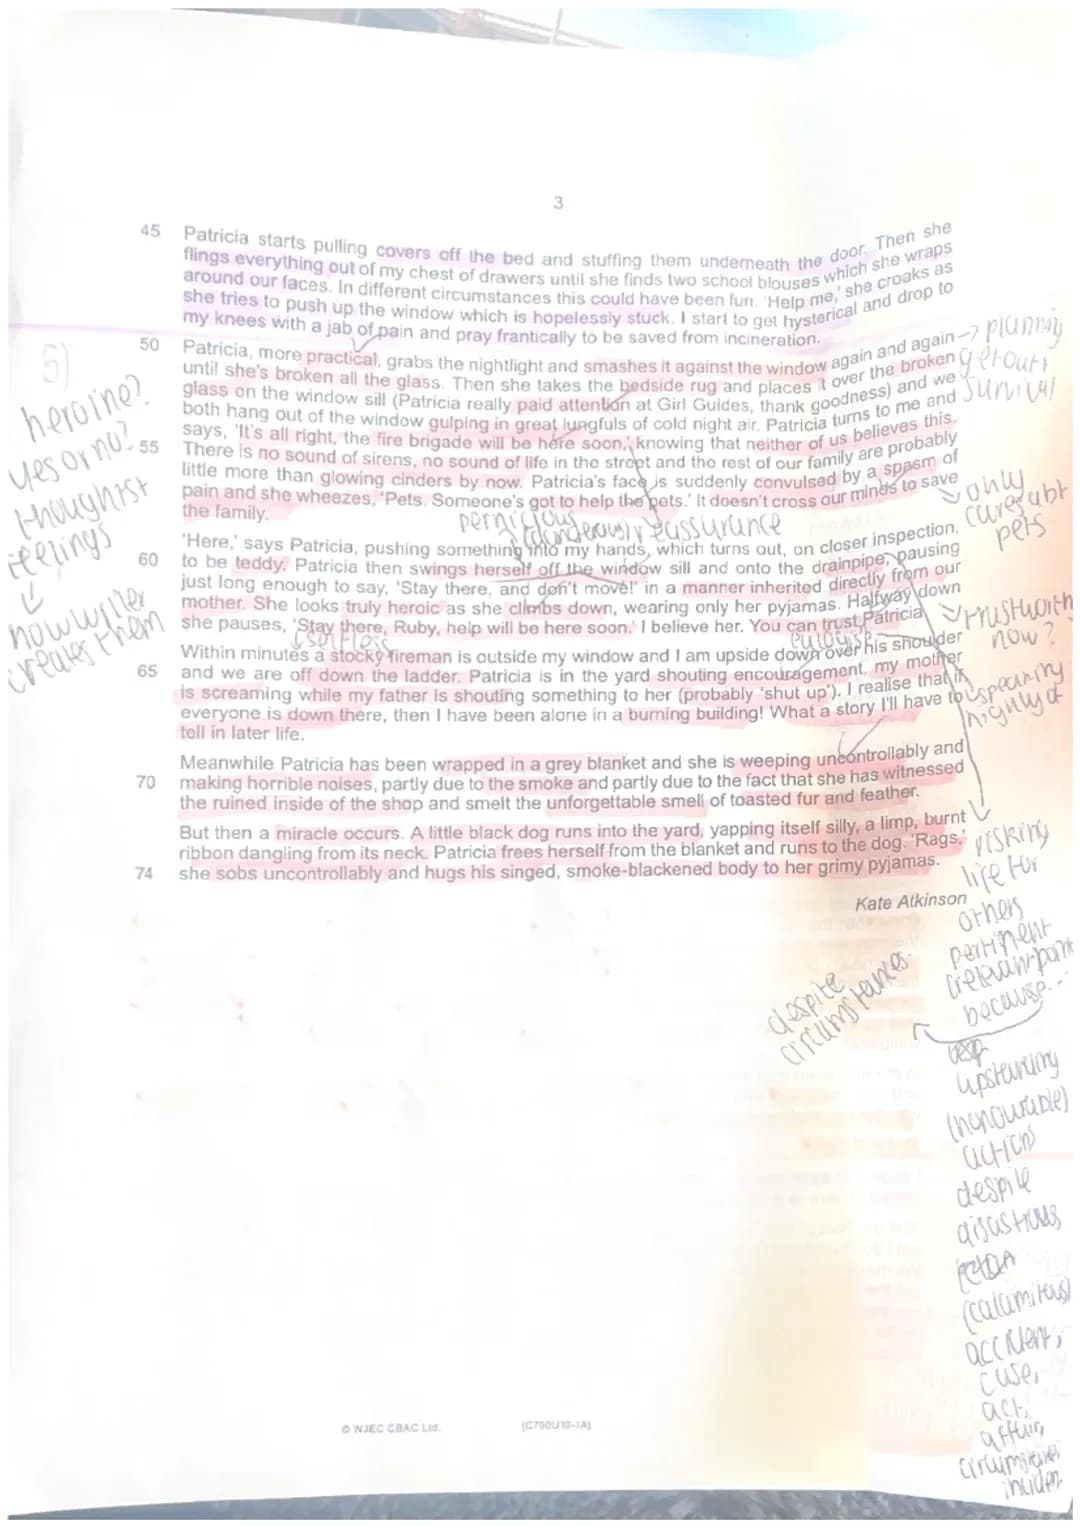 3
45 Patricia starts pulling covers off the bed and stuffing them underneath the door. Then she
flings everything out of my chest of drawers until she finds two school blouses which she wraps
around our faces. In different circumstances this could have been fun. 'Help me,' she croaks as
she tries to push up the window which is hopelessly stuck. I start to get hysterical and drop to
my knees with a jab of pain and pray frantically to be saved from incineration.
50 Patricia, more practical, grabs the nightlight and smashes it against the window again and again
until she's broken all the glass. Then she takes the bedside rug and places it over the broken
glass on the window sill (Patricia really paid attention at Girl Guides, thank goodness) and we
both hang out of the window gulping in great lungfuls of cold night air. Patricia turns to me and
says, 'It's all right, the fire brigade will be here soon,' knowing that neither of us believes this.
55 There is no sound of sirens, no sound of life in the street and the rest of our family are probably
little more than glowing cinders by now. Patricia's face is suddenly convulsed by a spasm of
pain and she wheezes, 'Pets. Someone's got to help the pets.' It doesn't cross our minds to save
the family.
'Here,' says Patricia, pushing something into my hands, which turns out, on closer inspection,
60 to be teddy. Patricia then swings herself off the window sill and onto the drainpipe, pausing
just long enough to say, 'Stay there, and don't move!' in a manner inherited directly from our
mother. She looks truly heroic as she climbs down, wearing only her pyjamas. Halfway down
she pauses, 'Stay there, Ruby, help will be here soon.' I believe her. You can trust Patricia.
Within minutes a stocky fireman is outside my window and I am upside down over his shoulder
65 and we are off down the ladder. Patricia is in the yard shouting encouragement, my mother
is screaming while my father is shouting something to her (probably 'shut up'). I realise that if
everyone is down there, then I have been alone in a burning building! What a story I'll have to
tell in later life.
Meanwhile Patricia has been wrapped in a grey blanket and she is weeping uncontrollably and
70 making horrible noises, partly due to the smoke and partly due to the fact that she has witnessed
the ruined inside of the shop and smelt the unforgettable smell of toasted fur and feather.
But then a miracle occurs. A little black dog runs into the yard, yapping itself silly, a limp, burnt
ribbon dangling from its neck. Patricia frees herself from the blanket and runs to the dog. 'Rags,'
74 she sobs uncontrollably and hugs his singed, smoke-blackened body to her grimy pyjamas.
Kate Atkinson
5)
heroine?
yes or no?
thoughts+
feelings
how writer
creates them
pernicious
(dangerous) reassurance
selfless
eulogise
planning
survival
only
cares abt
pets
trustworth
now?
speaking
highly of
risking
life for
others
pertinent
(relevant) point
because...
despite
circumstances
upstanding
(honourable)
actions
despite
disastrous
(calamitous)
accident,
case,
act,
affair,
circumstances
incident
© WJEC CBAC Ltd.
(C700U10-1A)